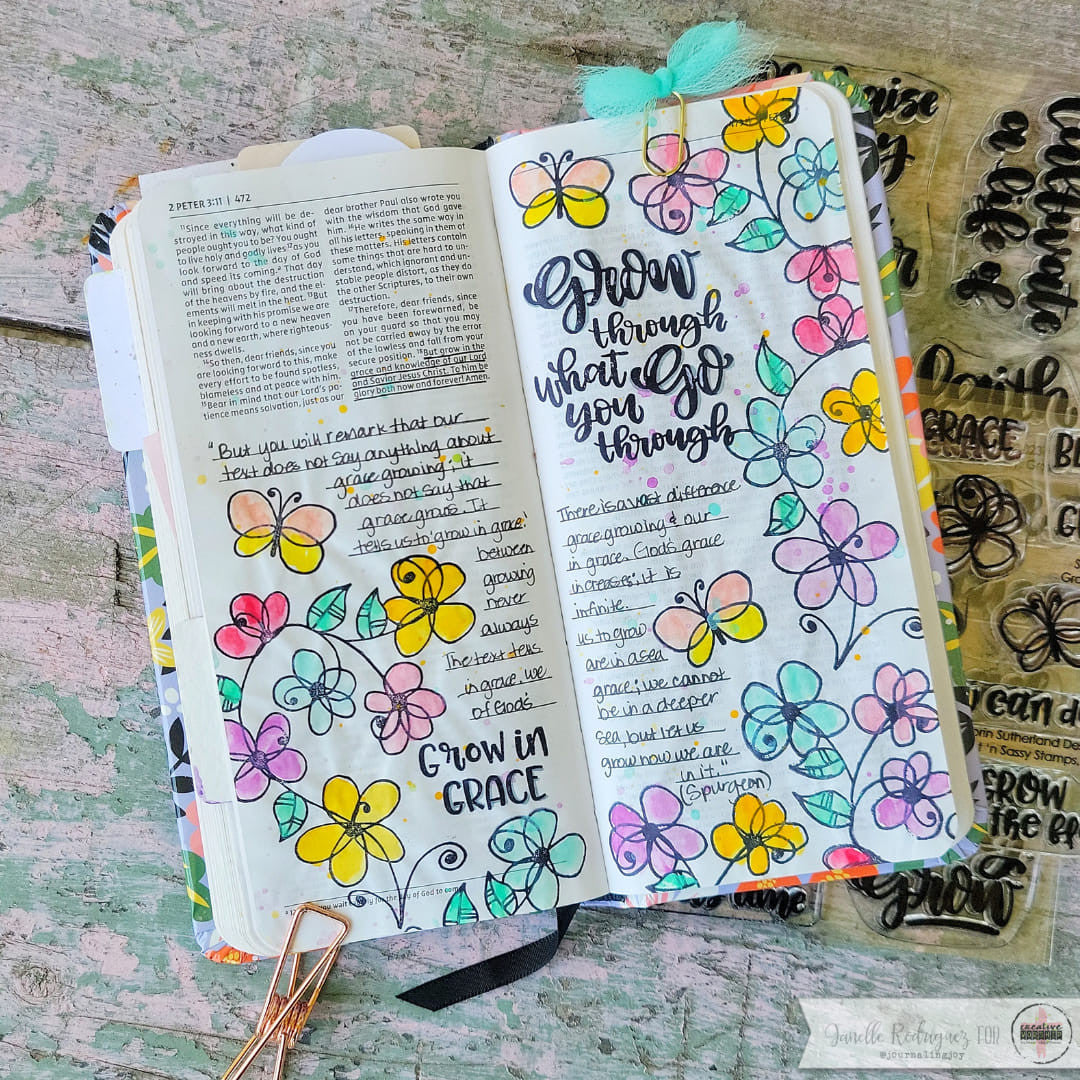 2 PETER 3:11 | 472
11Since everything will be de-
stroyed in this way, what kind of
people ought you to be? You ought
to live holy and godly lives 12as you
look forward to the day of God
and speed its coming.a That day
will bring about the destruction
of the heavens by fire, and the el-
ements will melt in the heat. 13But
in keeping with his promise we are
looking forward to a new heaven
and a new earth, where righteous-
ness dwells.
14So then, dear friends, since you
are looking forward to this, make
every effort to be found spotless,
blameless and at peace with him.
15Bear in mind that our Lord's pa-
tience means salvation, just as our
dear brother Paul also wrote you
with the wisdom that God gave
him. 16He writes the same way in
all his letters, speaking in them of
these matters. His letters contain
some things that are hard to un-
derstand, which ignorant and un-
stable people distort, as they do
the other Scriptures, to their own
destruction.
17Therefore, dear friends, since
you have been forewarned, be
on your guard so that you may
not be carried away by the error
of the lawless and fall from your
secure position. 18But grow in the
grace and knowledge of our Lord
and Savior Jesus Christ. To him be
glory both now and forever! Amen.
"But you will remark that our
text does not say anything about
grace growing; it
does not say that
grace grows. It
tells us to 'grow in grace.'
between
growing
never
always
The text tells
in grace. we
of God's
Grow in
GRACE
a 12 you wait for the day of God to come
Grow
through
what Go
you
through
There is a vast difference
grace growing & our
in grace. God's grace
increases; it is
infinite.
us to grow
are in a sea
grace; we cannot
be in a deeper
sea, but let us
grow now we are
in it."
(Spurgeon)
Praise
Cultivate
a life of
faith
GRACE
You can do
Sutherland
'n Sassy Stamps
GROW
the
Grow
Janelle Rodriguez FOR
@journalingjoy
creative
worship